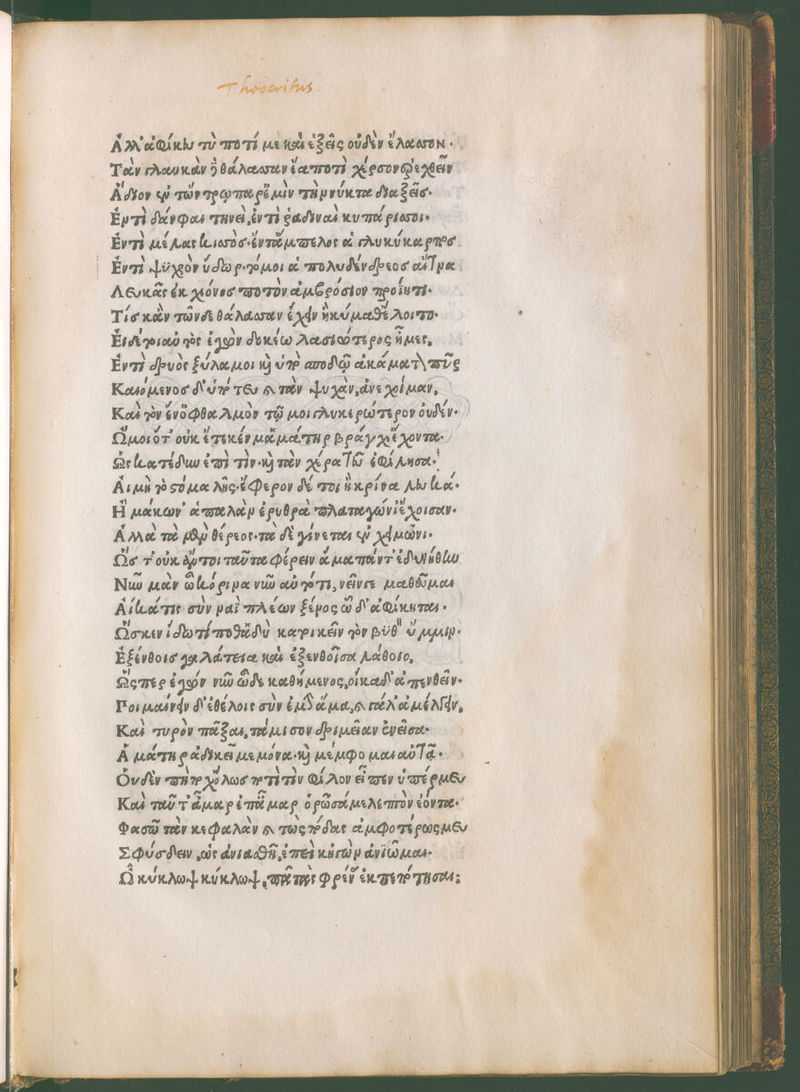 Thoocritus.
Ἀλλ' ἀφίκευ τὺ ποτί με καὶ ἑξεῖς οὐδὲν ἔλασσον.
Τὰν γλαυκὰν δὲ θάλασσαν ἔα ποτὶ χέρσον ὀρεχθεῖν
Ἅδιον ἐν τὤντρῳ παρ' ἐμὶν τὴν νύκτα διαξεῖς.
Ἐντὶ δάφναι τηνεὶ, ἐντὶ ῥαδιναὶ κυπάρισσοι.
Ἐντὶ μέλας κισσὸς. ἔντ' ἄμπελος ἁ γλυκύκαρπος
Ἐντὶ ψύχρὸν ὕδωρ. τό μοι ἁ πολυδένδρεος αἴτνα
Λευκᾶς ἐκ χιόνος ποτὸν ἀμβρόσιον προΐητι.
Τίς κὰν τῶνδε θάλασσαν ἔχειν ἢ κύμαθ' ἕλοιτο.
Εἰ δέ τοι αὐτὸς ἐγὼν δοκέω λασιώτερος ἦμες,
Ἐντὶ δρυὸς ξύλα μοι καὶ ὑπὸ σποδῷ ἀκάματον πῦρ
Καιόμενος δ' ὑπὸ τεῦ καὶ τὰν ψυχὰν, ἀνεχοίμαν,
Καὶ τὸν ἕν' ὀφθαλμὸν τῷ μοι γλυκερώτερον οὐδέν.
Ὤμοι ὅτ' οὐκ ἔτεκέν μ' ἁ μάτηρ βράγχι' ἔχοντα.
Ὡς κατέδυν ἐπὶ τίν. καὶ τὰν χέρα τεῦ ἐφίλησα.
Αἰ μὴ τὸ στόμα λῇς. ἔφερον δέ τοι ἢ κρίνα λευκά.
Ἢ μάκων' ἁπαλὰν ἐρυθρὰ πλαταγώνι' ἔχοισαν.
Ἀλλὰ τὰ μὲν θέρεος. τὰ δὲ γίνεται ἐν χειμῶνι.
Ὥστ' οὐκ ἄν τοι ταῦτα φέρειν ἅμα πάντ' ἐδυνήθην
Νῦν μὰν ὦ κόριμα νῦν αὐτόθι, νεῖν γε μαθεῦμαι
Αἴ κά τις σὺν ναῒ πλέων ξένος ὧδ' ἀφίκηται.
Ὥς κεν ἴδω τί ποθ' ἁδὺ κατοικεῖν τὸν βυθὸν ὔμμιν.
Ἐξένθοις γαλάτεια καὶ ἐξενθοῖσα λάθοιο,
Ὥσπερ ἐγὼν νῦν ὧδε καθήμενος, οἴκαδ' ἀπενθεῖν.
Ποιμαίνειν δ' ἐθέλοις σὺν ἐμὶν ἅμα, καὶ γάλ' ἀμέλγειν,
Καὶ τυρὸν πᾶξαι, τάμισον δριμεῖαν ἐνεῖσα.
Ἁ μάτηρ ἀδικεῖ με μόνα. καὶ μέμφομαι αὐτᾷ.
Οὐδὲν πὴ ποχ' ὅλως ποτὶ τὶν φίλον εἶπεν ὑπέρ μευ
Καὶ ταῦτ' ἆμαρ ἐπ' ἆμαρ ὁρῶσά με λεπτὸν ἐόντα.
Φασῶ τὰν κεφαλὰν καὶ τὼς πόδας ἀμφοτέρως μευ
Σφύσδειν, ὡς ἀνιαθῇ, ἐπεὶ κἠγὼν ἀνιῶμαι.
Ὦ κύκλωψ κύκλωψ, πᾶ τὰς φρένας ἐκπεπότησαι;